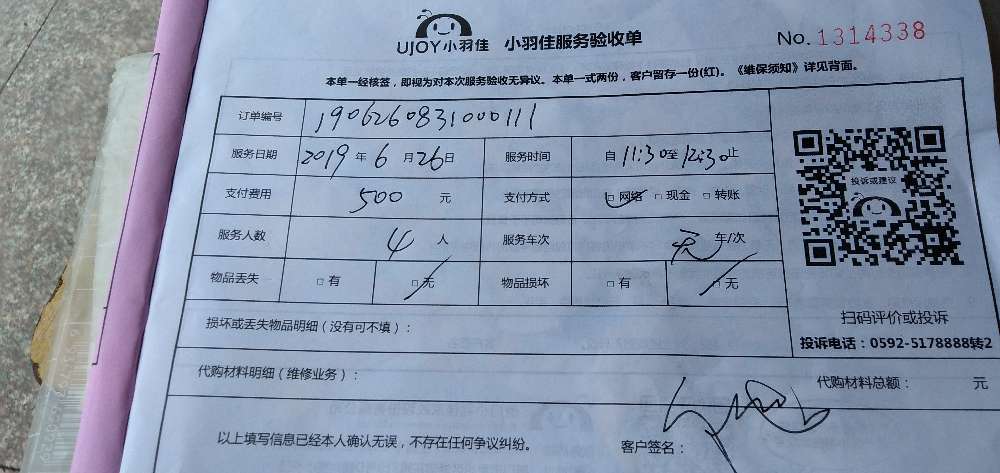 UJOY小羽佳 小羽佳服务验收单 No.1314338
本单一经核签，即视为对本次服务验收无异议。本单一式两份，客户留存一份(红)。《维保须知》详见背面。
订单编号 1906260831000111
服务日期 2019年6月26日 服务时间 自11:30至12:30止
支付费用 500元 支付方式 □网络 □现金 □转账
服务人数 4人 服务车次 无车/次
物品丢失 □有 □无 物品损坏 □有 □无
投诉或建议
扫码评价或投诉
投诉电话：0592-5178888转2
损坏或丢失物品明细（没有可不填）：
代购材料明细（维修业务）： 代购材料总额： 元
以上填写信息已经本人确认无误，不存在任何争议纠纷。 客户签名：